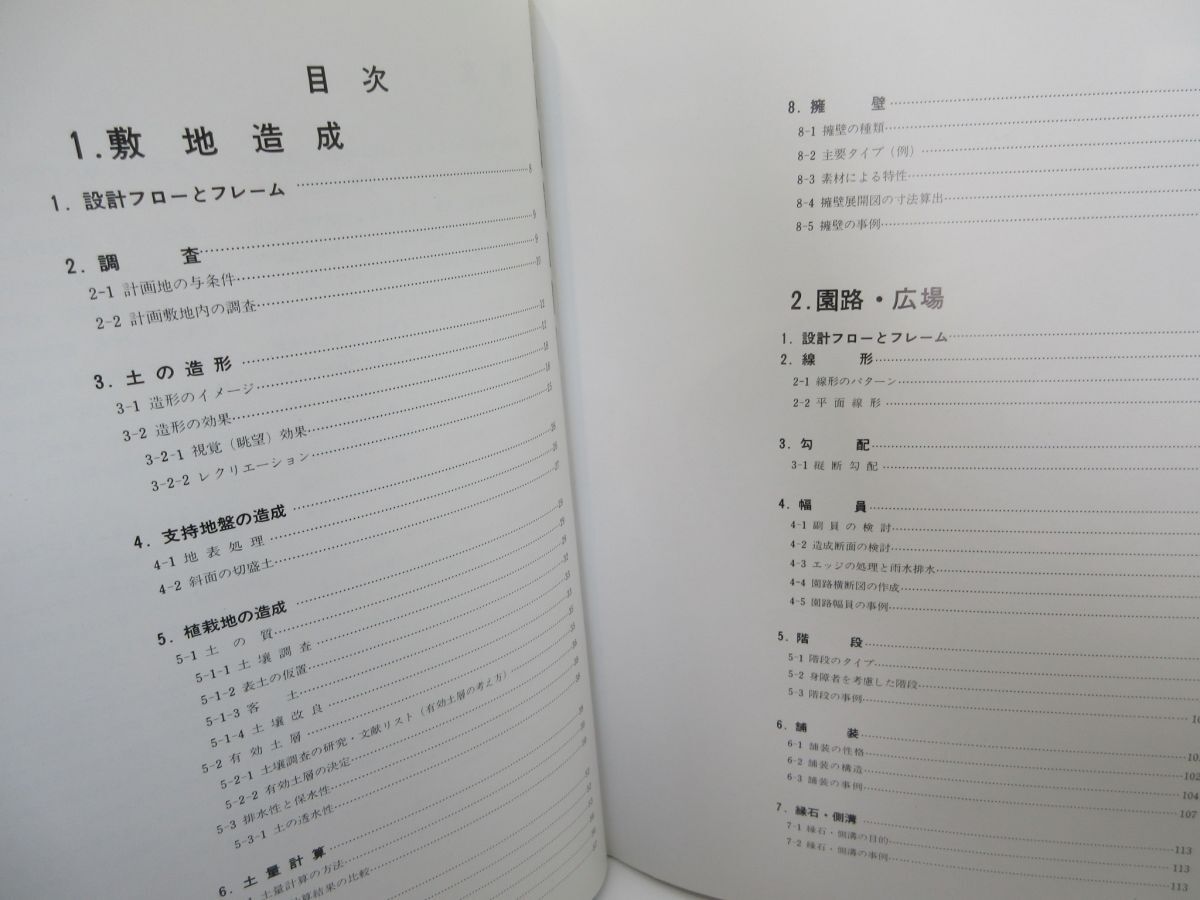 目 次
1. 敷 地 造 成
1. 設計フローとフレーム 8
2. 調 査 9
2-1 計画地の与条件 9
2-2 計画敷地内の調査
3. 土 の 造 形
3-1 造形のイメージ
3-2 造形の効果
3-2-1 視覚（眺望）効果
3-2-2 レクリエーション
4. 支持地盤の造成
4-1 地 表 処 理
4-2 斜面の切盛土
5. 植栽地の造成
5-1 土 の 質
5-1-1 土 壌 調 査
5-1-2 表土の仮置
5-1-3 客 土
5-1-4 土 壌 改 良
5-2 有 効 土 層
5-2-1 土壌調査の研究・文献リスト（有効土層の考え方）
5-2-2 有効土層の決定
5-3 排水性と保水性
5-3-1 土の透水性
6. 土 量 計 算
土量計算の方法
算結果の比較
8. 擁 壁
8-1 擁壁の種類
8-2 主要タイプ（例）
8-3 素材による特性
8-4 擁壁展開図の寸法算出
8-5 擁壁の事例
2. 園路・広場
1. 設計フローとフレーム
2. 線 形
2-1 線形のパターン
2-2 平 面 線 形
3. 勾 配
3-1 縦 断 勾 配
4. 幅 員
4-1 副 員 の 検 討
4-2 造成断面の検討
4-3 エッジの処理と雨水排水
4-4 園路横断図の作成
4-5 園路幅員の事例
5. 階 段
5-1 階段のタイプ
5-2 身障者を考慮した階段
5-3 階段の事例
6. 舗 装
6-1 舗装の性格
6-2 舗装の構造 102
6-3 舗装の事例 104
7. 縁石・側溝
7-1 縁石・側溝の目的 113
7-2 縁石・側溝の事例 113